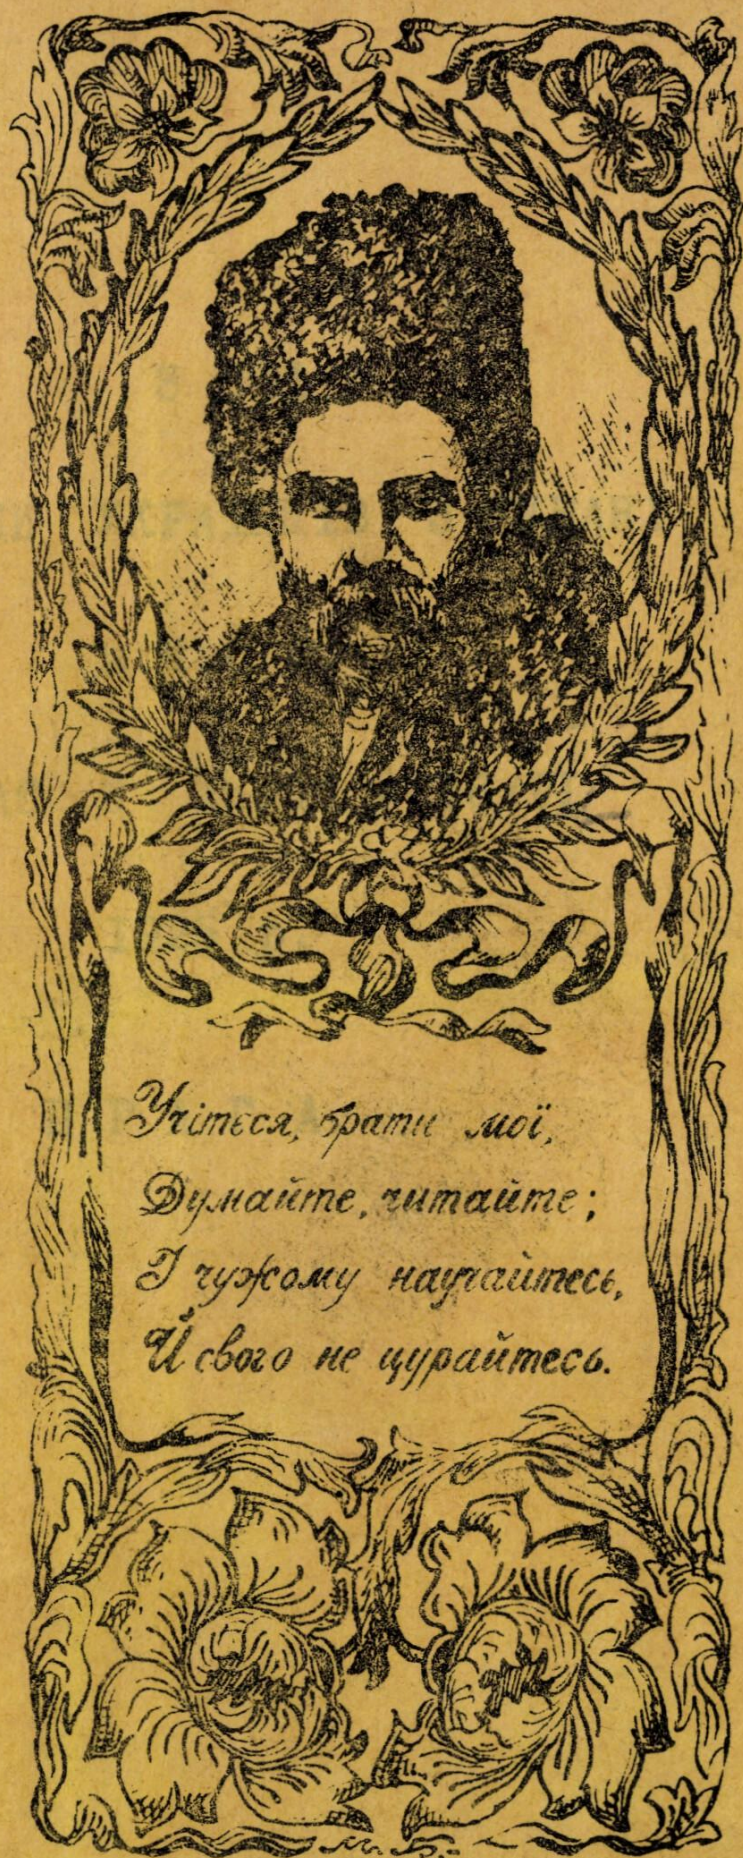 Учітеся, брати мої,
Думайте, читайте;
І чужому научайтесь,
Й свого не цурайтесь.
М. Б.